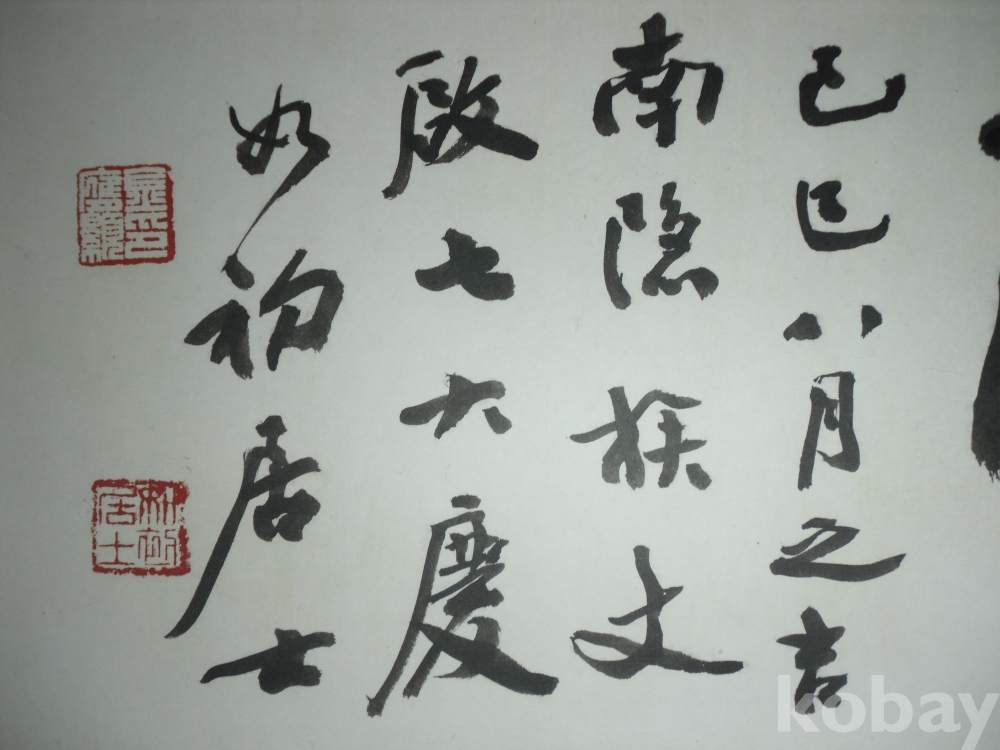 己巳八月之吉
南隐族丈
啟七大慶
如初居士
如初居士
kobay